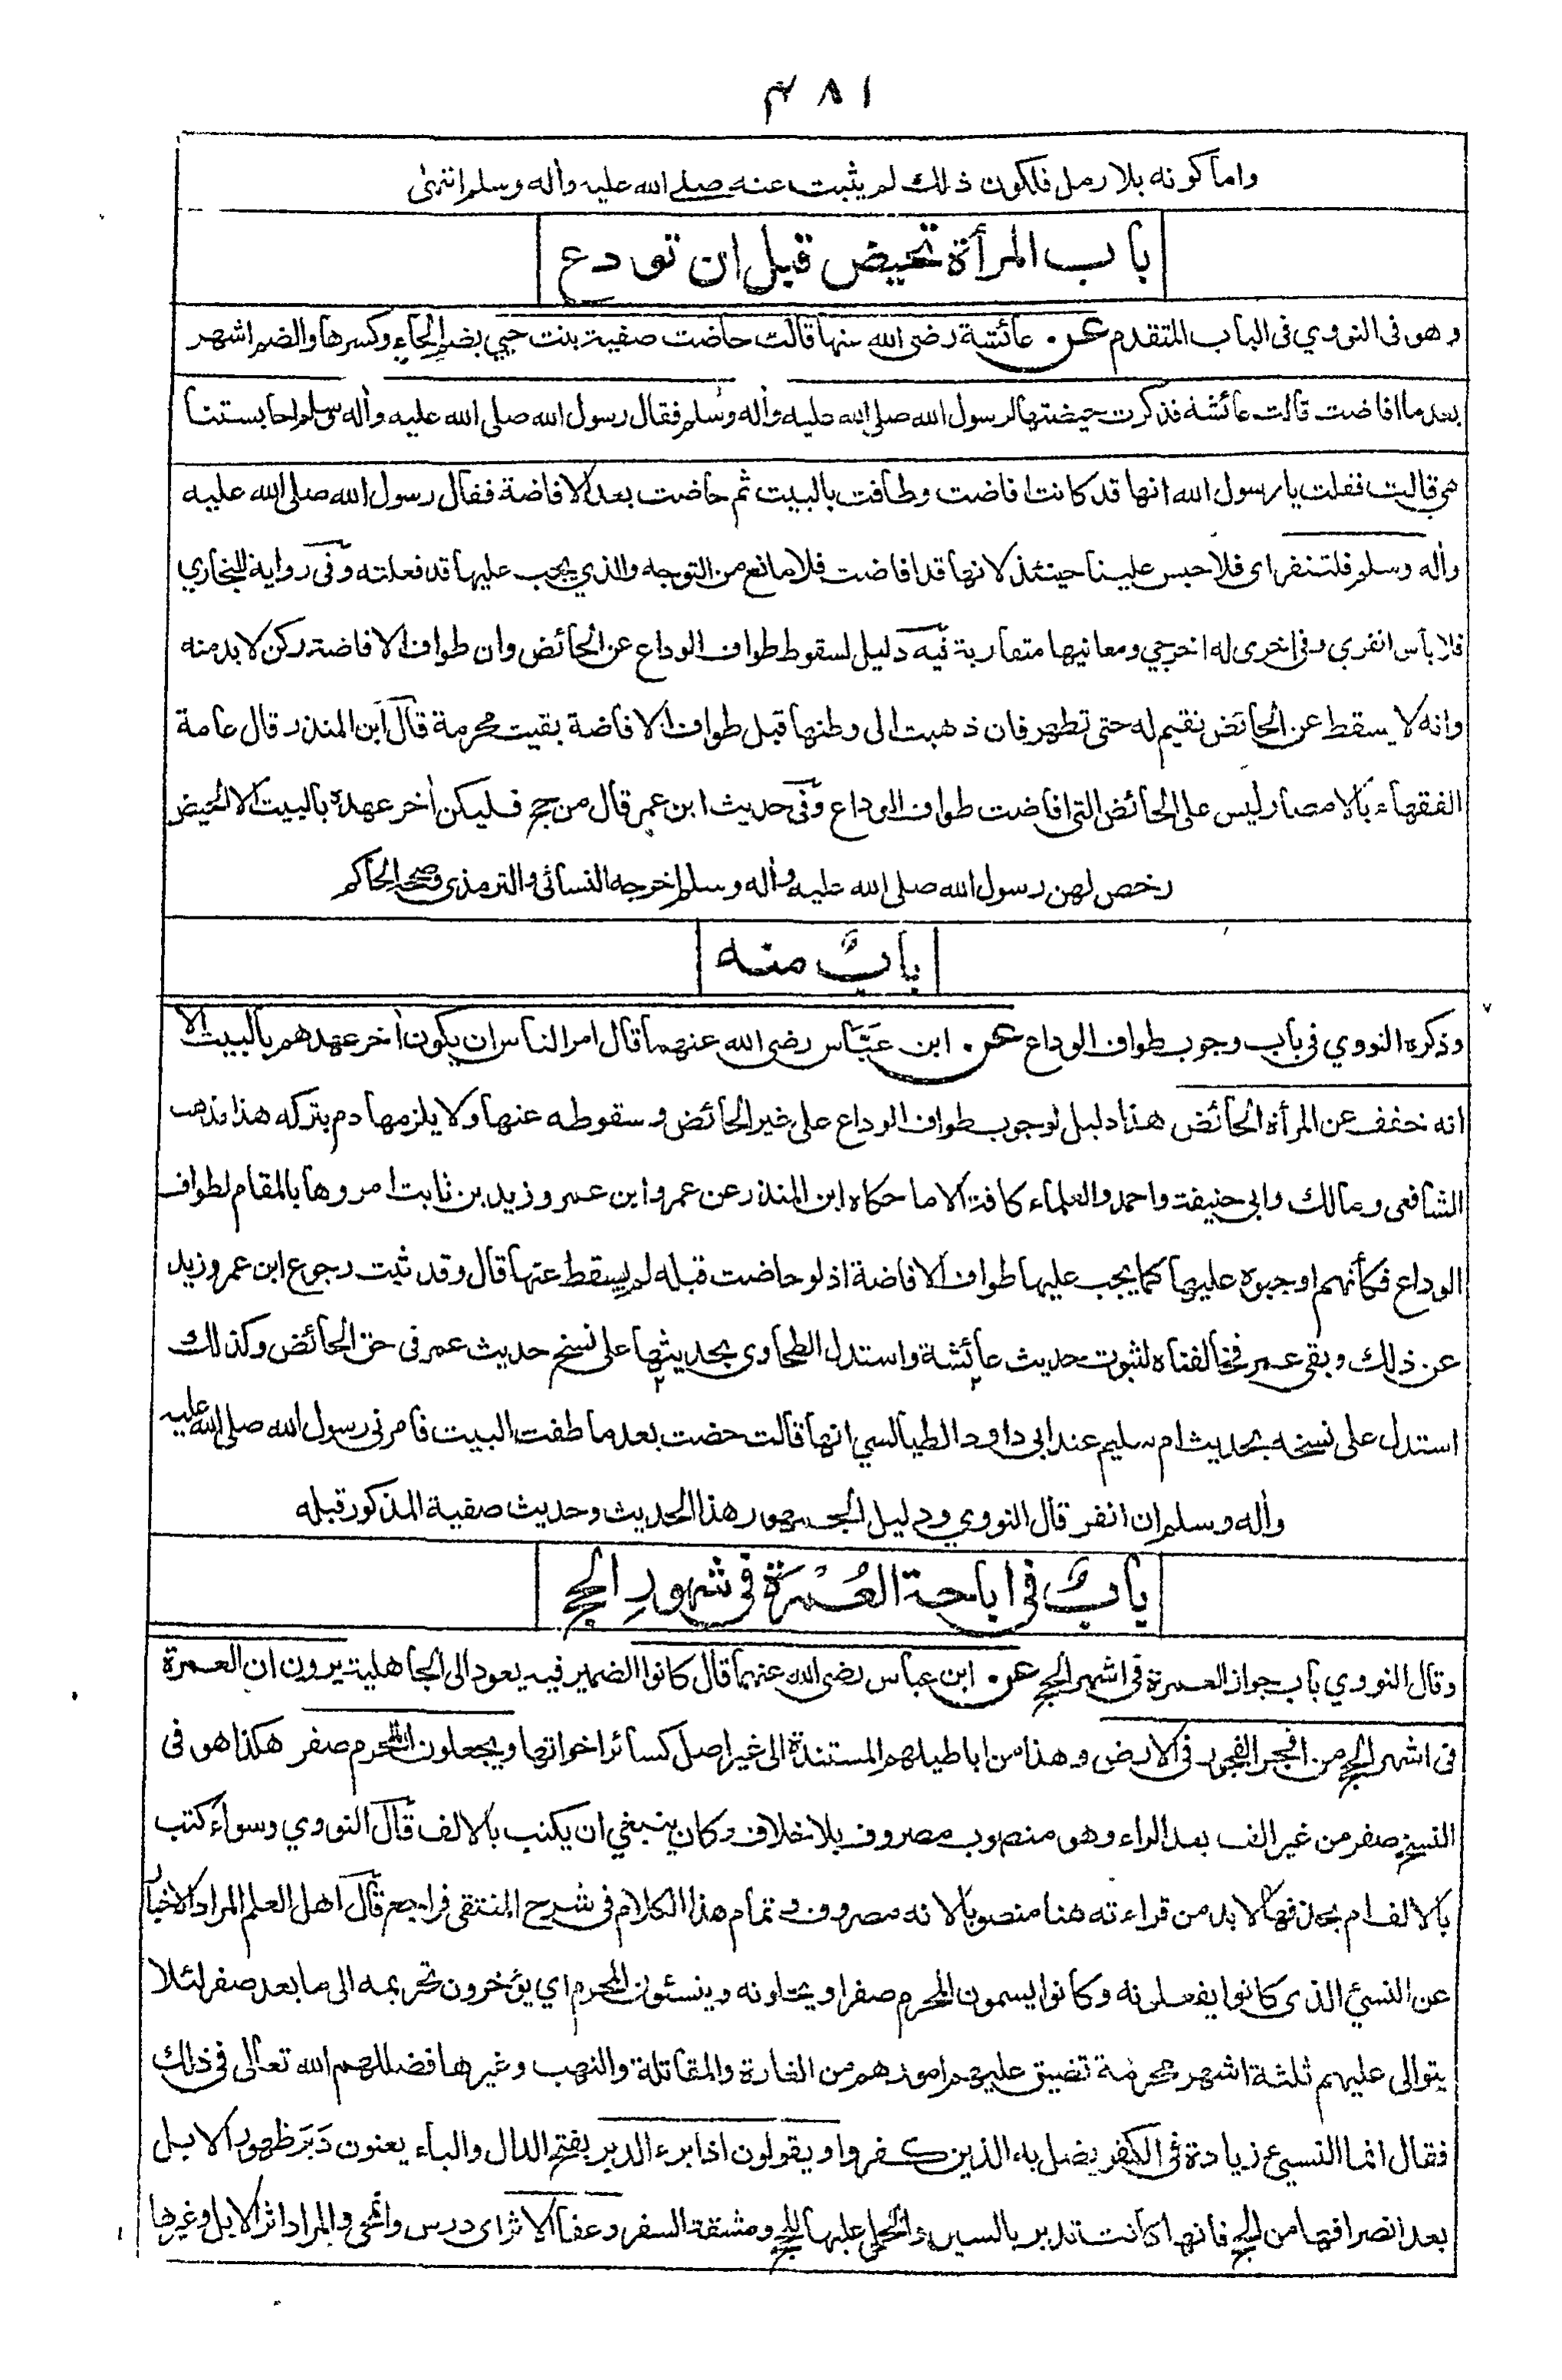 ٤٨١
واما كونه بلا رمل فلكون ذلك لم يثبت عنه صلى الله عليه وأله وسلم انتهى
باب المرأة تحيض قبل ان تودع
وهو فى النووي فى الباب المتقدم عن عائشة رضى الله عنها قالت حاضت صفية بنت حيي بضم الحاء وكسرها والضم اشهر
بعد ما افاضت قالت عائشة فذكرت حيضتها لرسول الله صلى الله عليه وأله وسلم فقال رسول الله صلى الله عليه وأله وسلم احابستنا
هي قالت فقلت يا رسول الله انها قد كانت افاضت وطافت بالبيت ثم حاضت بعد الافاضة فقال رسول الله صلى الله عليه
وأله وسلم فلتنفر اى فلا حبس علينا حينئذ لانها قد افاضت فلا مانع من التوجه والذي يجب عليها قد فعلته وفى رواية للبخاري
فلا بأس انفري وفى اخرى له اخرجي ومعانيها متقاربة فيه دليل لسقوط طواف الوداع عن الحائض وان طواف الافاضة ركن لابد منه
وانه لا يسقط عن الحائض نقيم له حتى تطهر فان ذهبت الى وطنها قبل طواف الافاضة بقيت محرمة قال ابن المنذر قال عامة
الفقهاء بالامصار ليس على الحائض التى افاضت طواف الوداع وفى حديث ابن عمر قال من حج فليكن أخر عهده بالبيت الا الحيض
رخص لهن رسول الله صلى الله عليه وأله وسلم اخرجه النسائى والترمذى وصححه الحاكم
باب منه
وذكره النووي فى باب وجوب طواف الوداع عن ابن عباس رضى الله عنهما قال امر الناس ان يكون أخر عهدهم بالبيت الا
انه خفف عن المرأة الحائض هذا دليل لوجوب طواف الوداع على غير الحائض وسقوطه عنها ولا يلزمها دم بتركه هذا مذهب
الشافعى ومالك وابى حنيفة واحمد والعلماء كافة الا ما حكاه ابن المنذر عن عمر وابن عمر وزيد بن ثابت امروها بالمقام لطواف
الوداع فكأنهم اوجبوه عليها كما يجب عليها طواف الافاضة اذ لو حاضت قبله لم يسقط عنها قال وقد ثبت رجوع ابن عمر وزيد
عن ذلك وبقى عمر فخالفناه لثبوت حديث عائشة واستدل الطحاوى بحديثها على نسخ حديث عمر فى حق الحائض وكذلك
استدل على نسخه بحديث ام سليم عند ابى داود الطيالسي انها قالت حضت بعد ما طفت البيت فامرنى رسول الله صلى الله عليه
وأله وسلم ان انفر قال النووي ودليل الجمهور هذا الحديث وحديث صفية المذكور قبله
باب فى اباحة العُمْرَة فى شهورِ الحج
وقال النووي باب جواز العمرة فى اشهر الحج عن ابن عباس رضى الله عنهما قال كانوا الضمير فيه يعود الى الجاهلية يرون ان العمرة
فى اشهر الحج من افجر الفجور فى الارض وهذا من اباطيلهم المستندة الى غير اصل كسائر اخواتها ويجعلون المحرم صفر هكذا هو فى
النسخ صفر من غير الف بعد الراء وهو منصوب مصروف بلا خلاف وكان ينبغي ان يكتب بالالف قال النووي وسواء كتب
بالالف ام بحذفها لا بد من قراءته هنا منصوبا لانه مصروف وتمام هذا الكلام فى شرح المنتقى فراجع قال اهل العلم المراد الاخبار
عن النسئ الذى كانوا يفعلونه وكانوا يسمون المحرم صفرا ويحلونه وينسئون المحرم اي يؤخرون تحريمه الى ما بعد صفر لئلا
يتوالى عليهم ثلثة اشهر محرمة تضيق عليهم امورهم من الغارة والمقاتلة والنهب وغيرها فضللهم الله تعالى فى ذلك
فقال انما النسيء زيادة فى الكفر يضل به الذين كفروا ويقولون اذا برء الدبر بفتح الدال والباء يعنون دَبَرَ ظهور الابل
بعد انصرافها من الحج فانها كانت تدبر بالسير والحمل عليها للحج ومشقة السفر وعفا الاثر اى درس وانمحى والمراد اثر الابل وغيرها